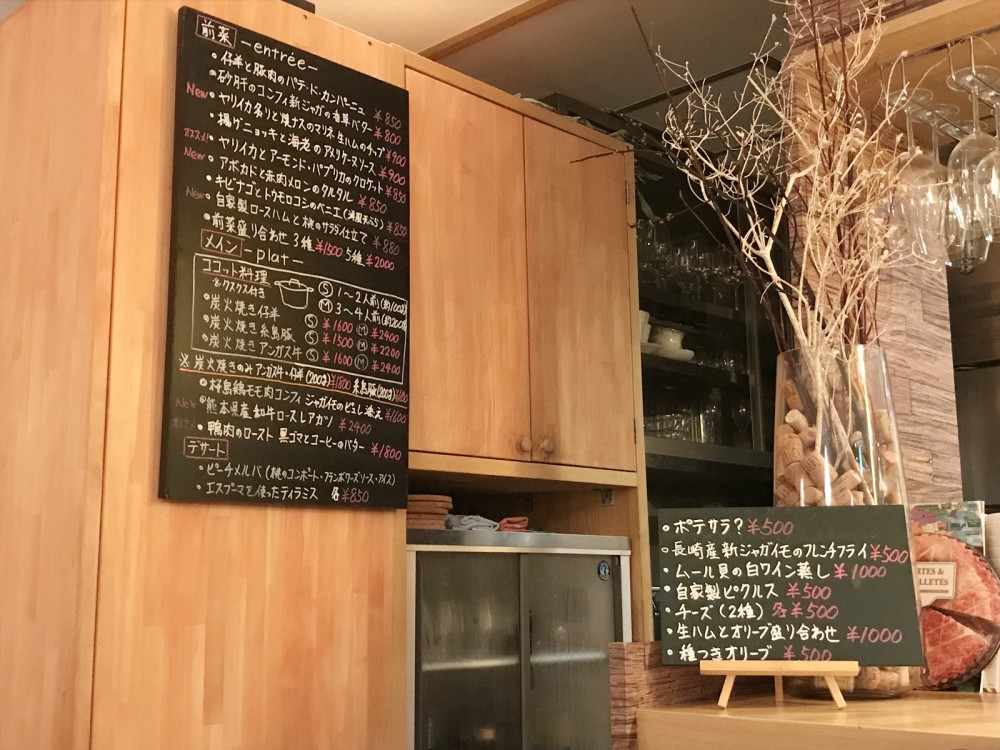 前菜 -entrée-
・仔羊と豚肉のパテ・ド・カンパーニュ ¥850
・砂肝のコンフィ新ジャガの香草バター ¥800
New ・ヤリイカ炙りと焼ナスのマリネ 生ハムのチップ ¥900
・揚げニョッキと海老のアメリケーヌソース ¥900
オススメ! ・ヤリイカとアーモンド・パプリカのクロケット ¥850
New ・アボカドと赤肉メロンのタルタル ¥850
・キビナゴとトウモロコシのベニエ(洋風天ぷら) ¥850
New ・自家製ロースハムと桃のサラダ仕立て ¥880
・前菜盛り合わせ 3種¥1500 5種¥2000
メイン -plat-
ココット料理
※クスクス付き
Ⓢ 1~2人前(約100g)
Ⓜ 3~4人前(約200g)
・炭火焼き仔羊 Ⓢ ¥1600 Ⓜ ¥2400
・炭火焼き糸島豚 Ⓢ ¥1500 Ⓜ ¥2200
・炭火焼きアンガス牛 Ⓢ ¥1600 Ⓜ ¥2400
※炭火焼きのみ アンガス牛・仔羊(200g)¥1800 糸島豚(200g)
・桜島鶏モモ肉コンフィ ジャガイモのピュレ添え ¥1600
New ・熊本県産和牛ロース レアカツ ¥2400
オススメ ・鴨肉のロースト 黒ゴマとコーヒーのバター ¥1800
デザート
・ピーチメルバ(桃のコンポート・フランボワーズソース・アイス)
・エスプーマを使ったティラミス 各¥850
・ポテサラ? ¥500
・長崎産新ジャガイモのフレンチフライ ¥500
・ムール貝の白ワイン蒸し ¥1000
・自家製ピクルス ¥500
・チーズ(2種) 各¥500
・生ハムとオリーブ盛り合わせ ¥1000
・種つきオリーブ ¥500